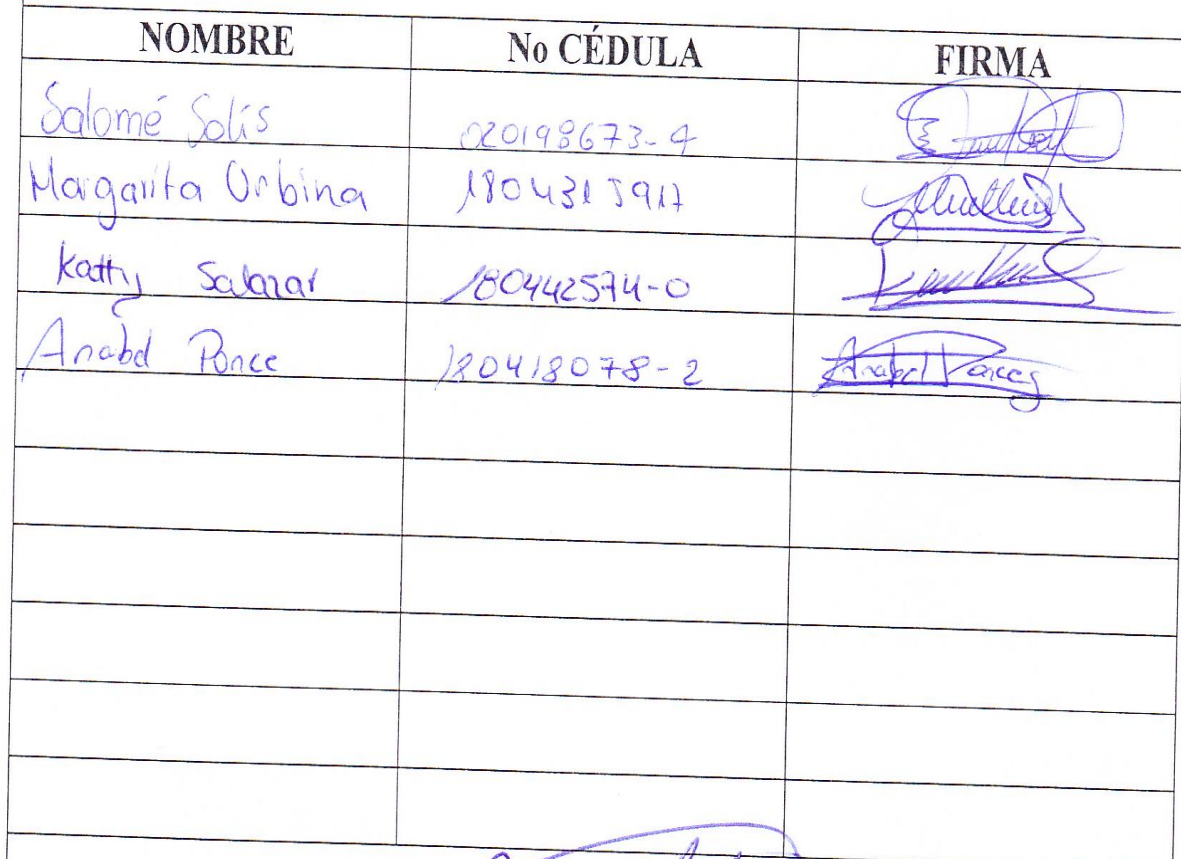 NOMBRE No CÉDULA FIRMA
Salomé Solís 020198673-4
Margarita Urbina 1804315917
Kathy Salazar 180442574-0
Anabel Ponce 180418078-2 Anabel Ponce